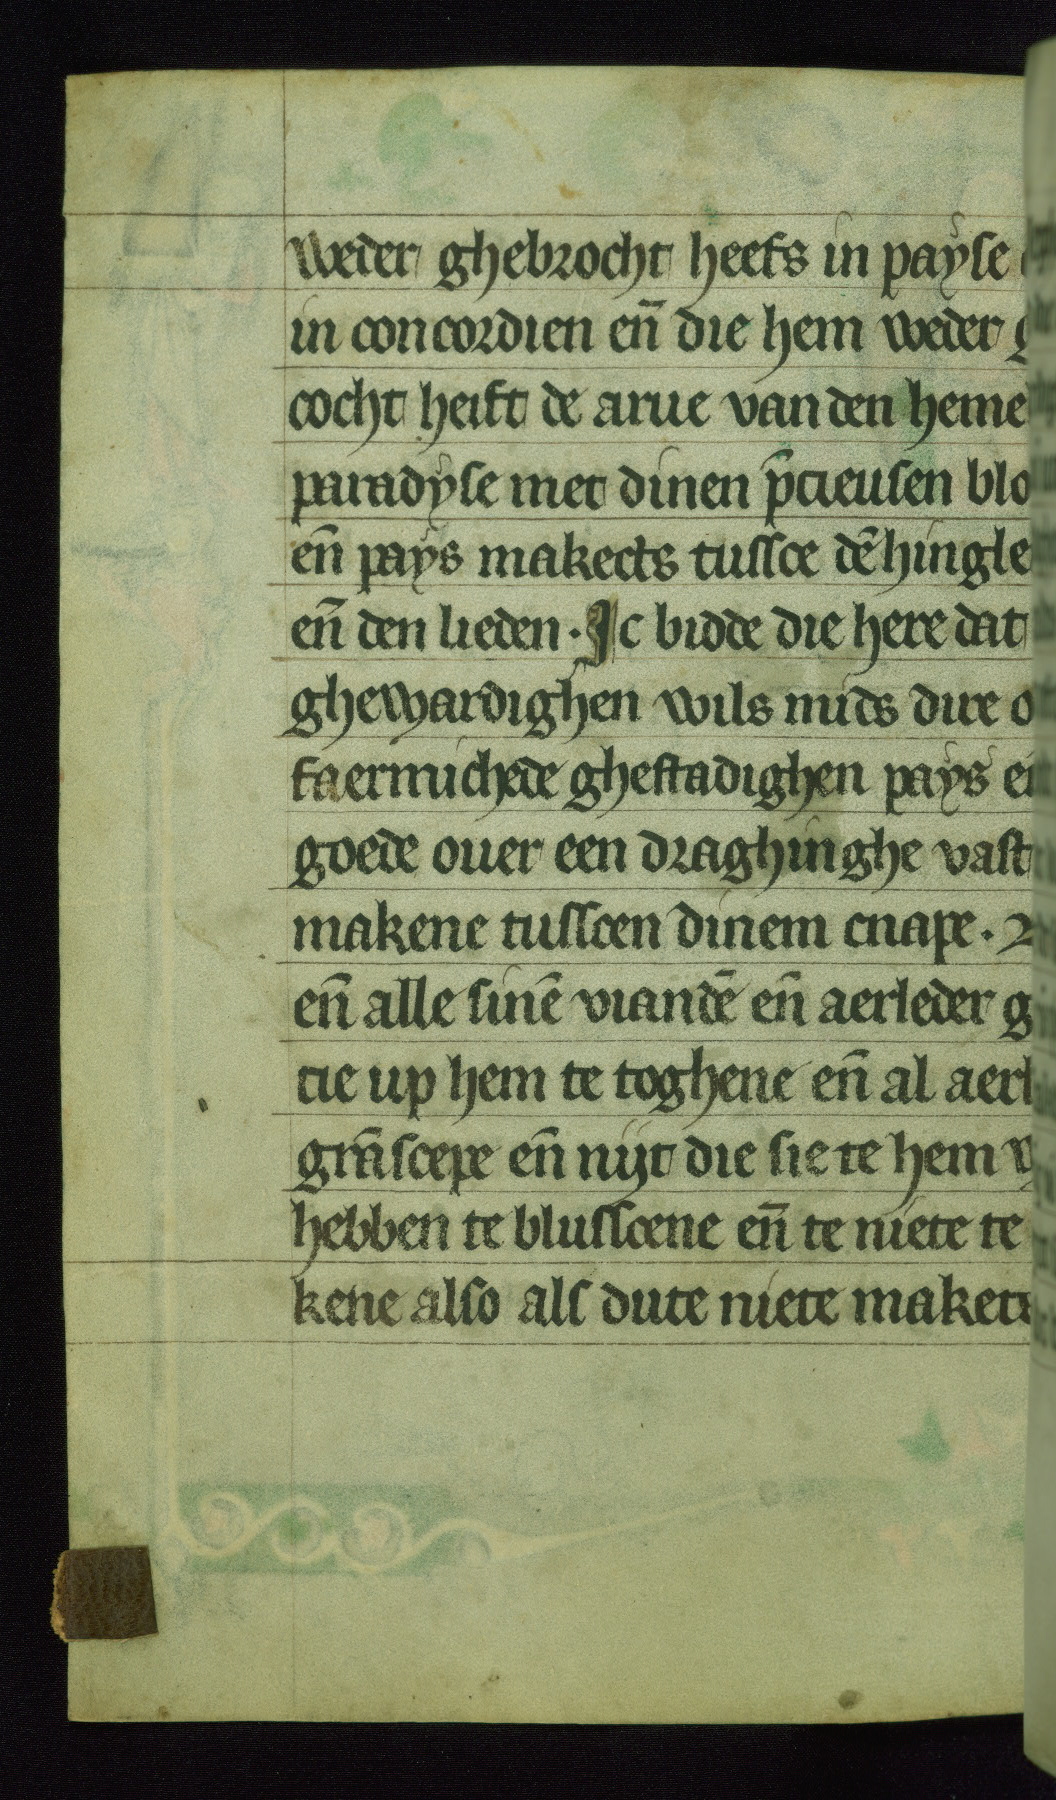 weder ghebrocht heefs in payse
in concordien en̄ die hem weder
cocht heift de arue van den heme
paradyse met dinen p̄cieusen blo
en̄ pays makects tussce dē hingle
en̄ den lieden · Ic bidde die here dat
ghewardighen wils mids dire o
faermichede ghestadighen pays en
goede ouer een draghinghe vast
makene tusscen dinem cnape ·
en̄ alle sinē viandē en̄ aerleder g
cie up hem te toghene en̄ al aerl
grāscepe en̄ nijt die sie te hem
hebben te blusscene en̄ te niete te
kene also als dute niete maket